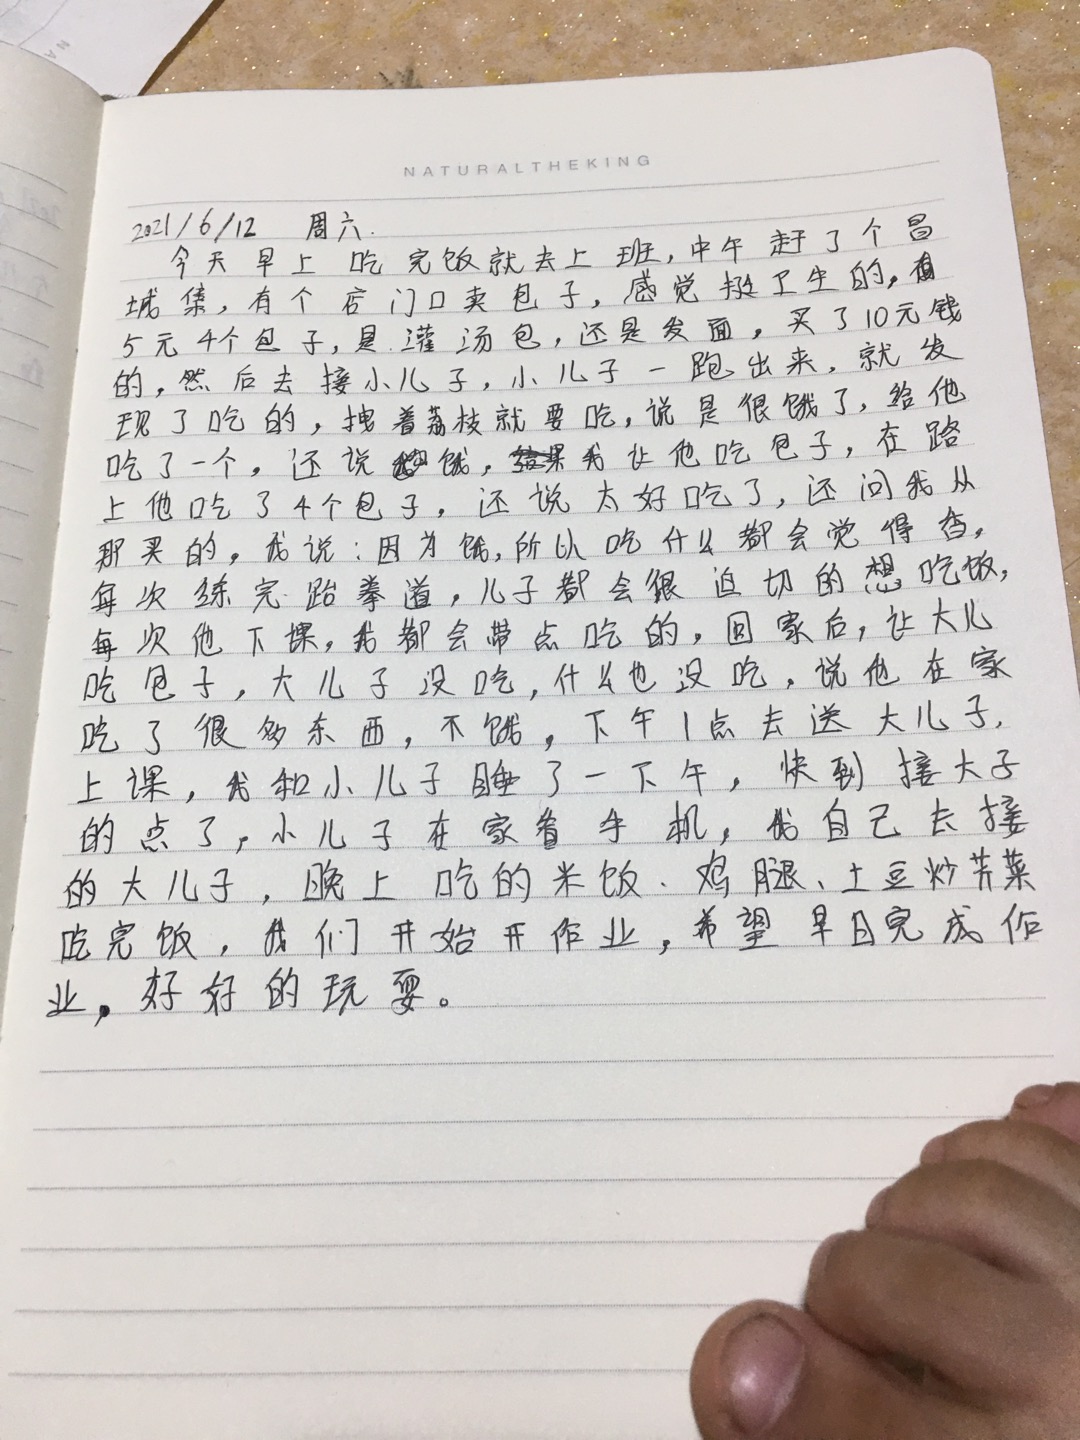 NATURALTHEKING
2021/6/12 周六.
今天早上吃完饭就去上班,中午赶了个昌
城集,有个店门口卖包子,感觉挺卫生的,
5元4个包子,是灌汤包,还是发面,买了10元钱
的,然后去接小儿子,小儿子一跑出来,就发
现了吃的,拽着荔枝就要吃,说是很饿了,给他
吃了一个,还说饿,我让他吃包子,在路
上他吃了4个包子,还说太好吃了,还问我从
那买的,我说:因为饿,所以吃什么都会觉得香,
每次练完跆拳道,儿子都会很迫切的想吃饭,
每次他下课,我都会带点吃的,回家后,让大儿
吃包子,大儿子没吃,什么也没吃,说他在家
吃了很多东西,不饿,下午1点去送大儿子,
上课,我和小儿子睡了一下午,快到接大子
的点了,小儿子在家看手机,我自己去接
的大儿子,晚上吃的米饭、鸡腿、土豆炒芹菜
吃完饭,我们开始开作业,希望早日完成作
业,好好的玩耍。